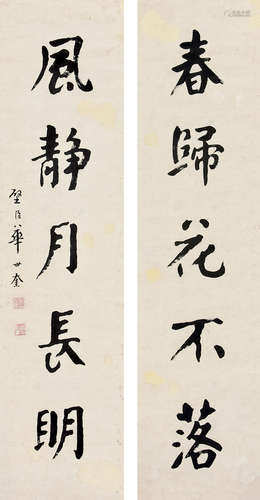 春歸花不落
風静月長明
璧臣華世奎